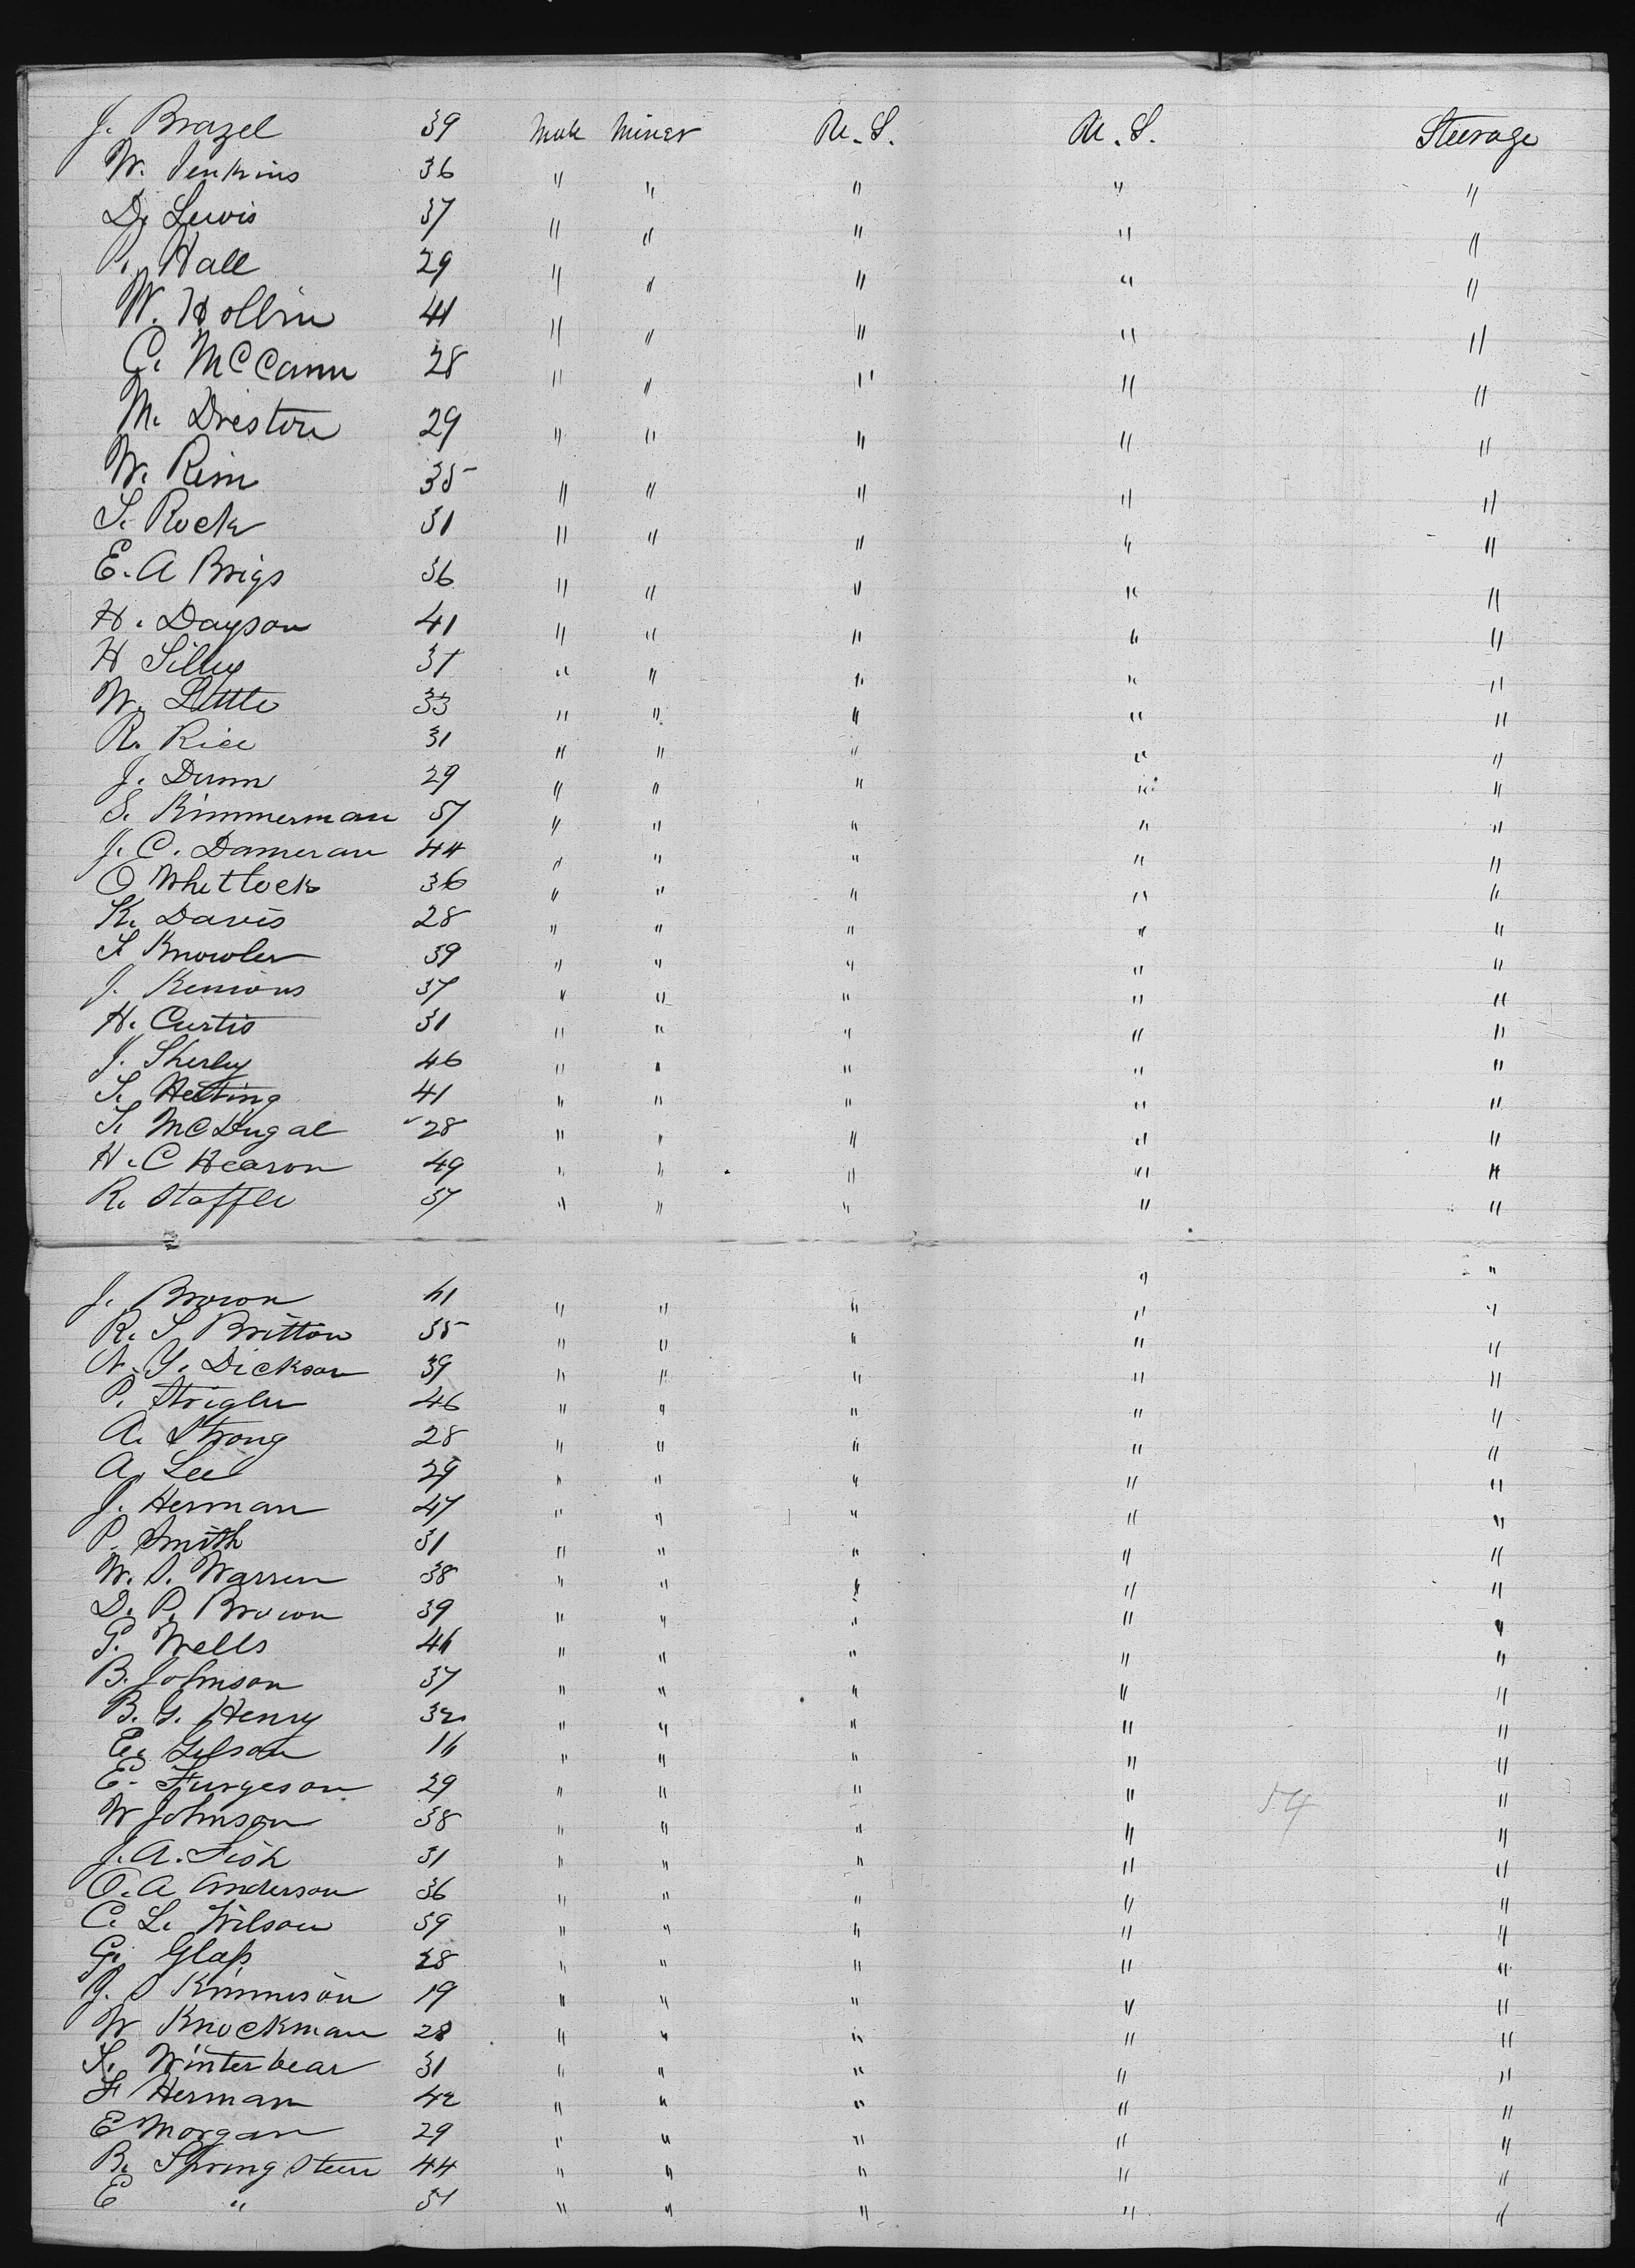 J. Brazel 39 Male Miner U.S. U.S. Steerage
W. Jenkins 36 " " " " "
D. Lewis 37 " " " " "
P. Hall 29 " " " " "
W. Hollin 41 " " " " "
C. McCann 28 " " " " "
M. Dreston 29 " " " " "
W. Rim 35 " " " " "
S. Rock 31 " " " " "
E. A Brigs 36 " " " " "
H. Dayson 41 " " " " "
H Silley 37 " " " " "
W. Little 33 " " " " "
R. Rice 31 " " " " "
J. Dunn 29 " " " " "
S. Kimmerman 57 " " " " "
J. C. Dameran 44 " " " " "
O Whitlock 36 " " " " "
K. Davis 28 " " " " "
F. Knowler 39 " " " " "
J. Kenions 37 " " " " "
H. Curtis 31 " " " " "
J. Sherley 46 " " " " "
S. Hetting 41 " " " " "
S. McDugal 28 " " " " "
H. C Hearon 49 " " " " "
R. Staffle 37 " " " " "
" "
J. Brown 41 " " " " "
R. S Britton 35 " " " " "
N. Y. Dickson 39 " " " " "
P. Strigler 46 " " " " "
A. Strong 28 " " " " "
A. Lee 29 " " " " "
J. Herman 47 " " " " "
P. Smith 31 " " " " "
W. S. Warren 38 " " " " "
D. P. Brown 39 " " " " "
G. Wells 46 " " " " "
B. Johnson 37 " " " " "
B. G. Henry 32 " " " " "
E. Gilson 16 " " " " "
E. Furgeson 29 " " " " "
54
W Johnson 38 " " " " "
J. A. Fish 31 " " " " "
O. A Anderson 36 " " " " "
C. L. Wilson 39 " " " " "
G. Glass 28 " " " " "
J. S Kinnison 19 " " " " "
W Knockman 28 " " " " "
S. Winterbear 31 " " " " "
F Herman 42 " " " " "
E Morgan 29 " " " " "
B. Spring Steen 44 " " " " "
E " 31 " " " " "